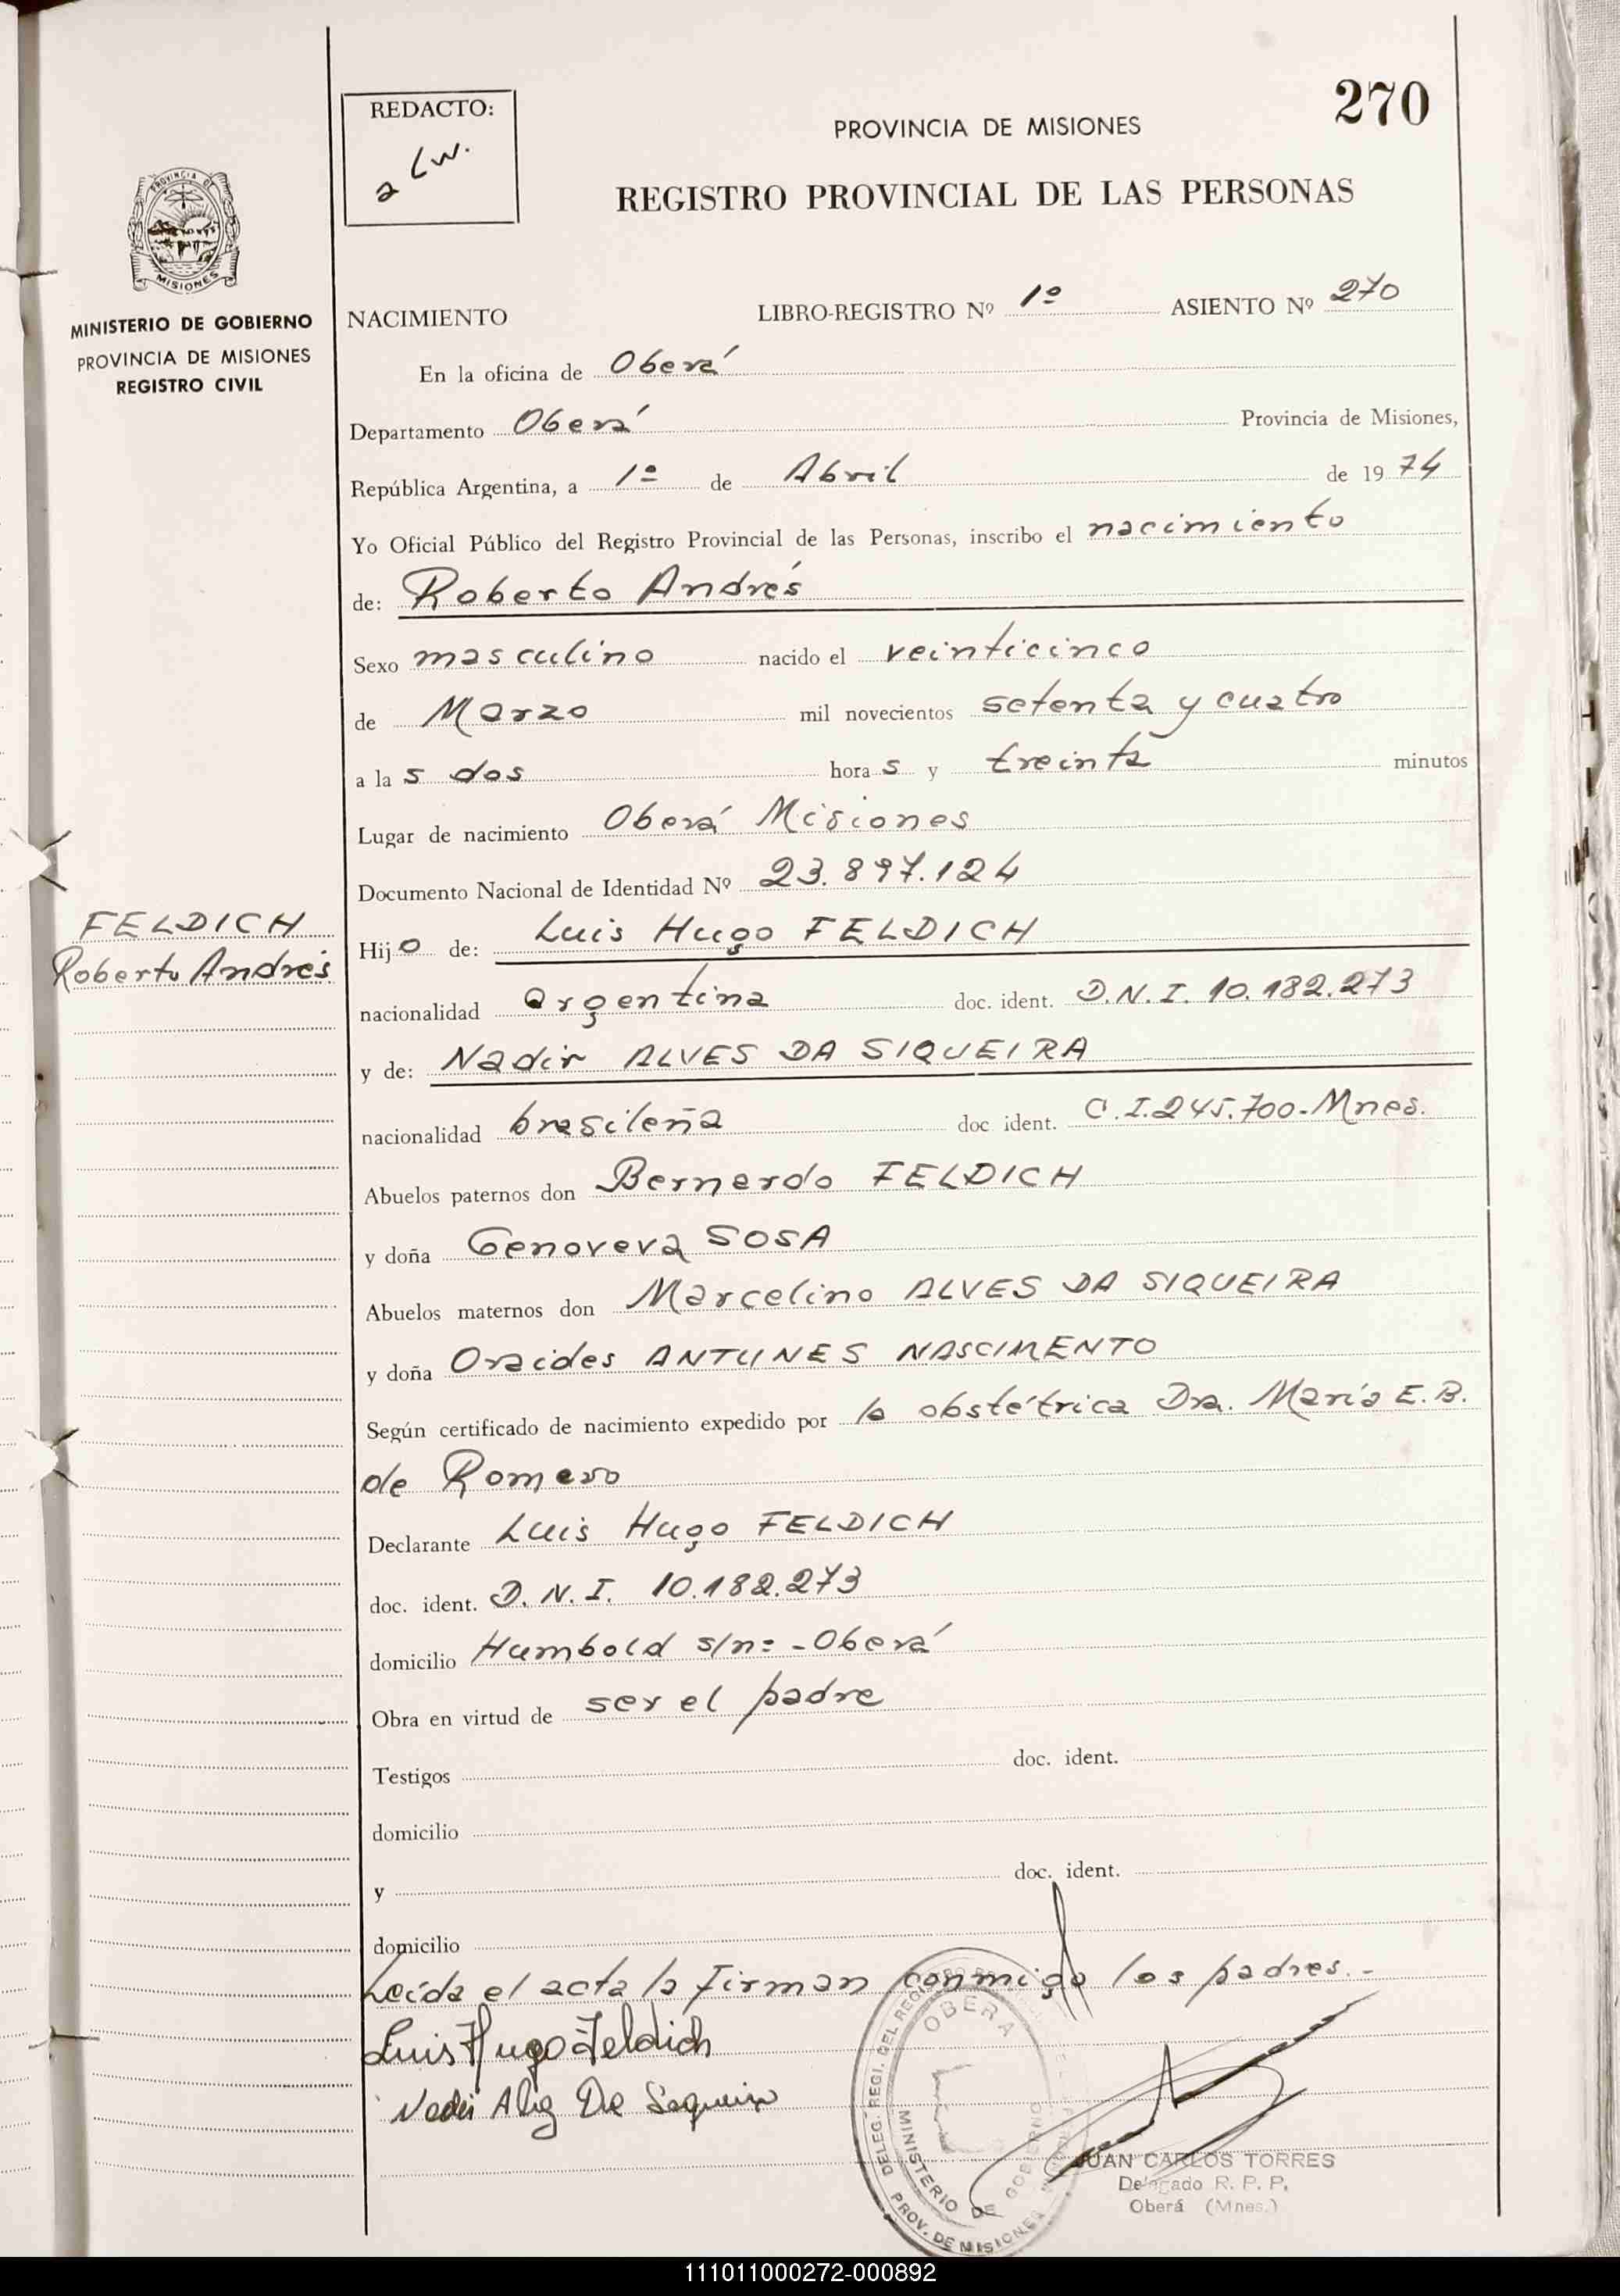 270
REDACTO:
a LW.
PROVINCIA DE MISIONES
REGISTRO PROVINCIAL DE LAS PERSONAS
PROVINCIA DE
MISIONES
MINISTERIO DE GOBIERNO
PROVINCIA DE MISIONES
REGISTRO CIVIL
NACIMIENTO LIBRO-REGISTRO Nº 1º ASIENTO Nº 270
En la oficina de Oberá
Departamento Oberá Provincia de Misiones,
República Argentina, a 1º de Abril de 1974
Yo Oficial Público del Registro Provincial de las Personas, inscribo el nacimiento
de: Roberto Andrés
Sexo masculino nacido el veinticinco
de Marzo mil novecientos setenta y cuatro
a la s dos hora s y treinta minutos
Lugar de nacimiento Oberá Misiones
Documento Nacional de Identidad Nº 23.897.124
FELDICH
Roberto Andrés
Hijo de: Luis Hugo FELDICH
nacionalidad argentina doc. ident. D.N.I. 10.182.273
y de: Nadir ALVES DA SIQUEIRA
nacionalidad brasileña doc ident. C.I.245.700-Mnes.
Abuelos paternos don Bernardo FELDICH
y doña Genoveva SOSA
Abuelos maternos don Marcelino ALVES DA SIQUEIRA
y doña Oraides ANTUNES NASCIMENTO
Según certificado de nacimiento expedido por la obstétrica Dra. María E. B.
de Romero
Declarante Luis Hugo FELDICH
doc. ident. D. N. I. 10.182.273
domicilio Humbold s/nº - Oberá
Obra en virtud de ser el padre
Testigos doc. ident.
domicilio
y doc. ident.
domicilio
Leída el acta la firman conmigo los padres.-
Luis Hugo Feldich
OBERA
DELEG. REGI. DEL REGISTRO
MINISTERIO DE GOBIERNO
PROV. DE MISIONES
JUAN CARLOS TORRES
Delegado R. P. P.
Oberá (Mnes.)
111011000272-000892